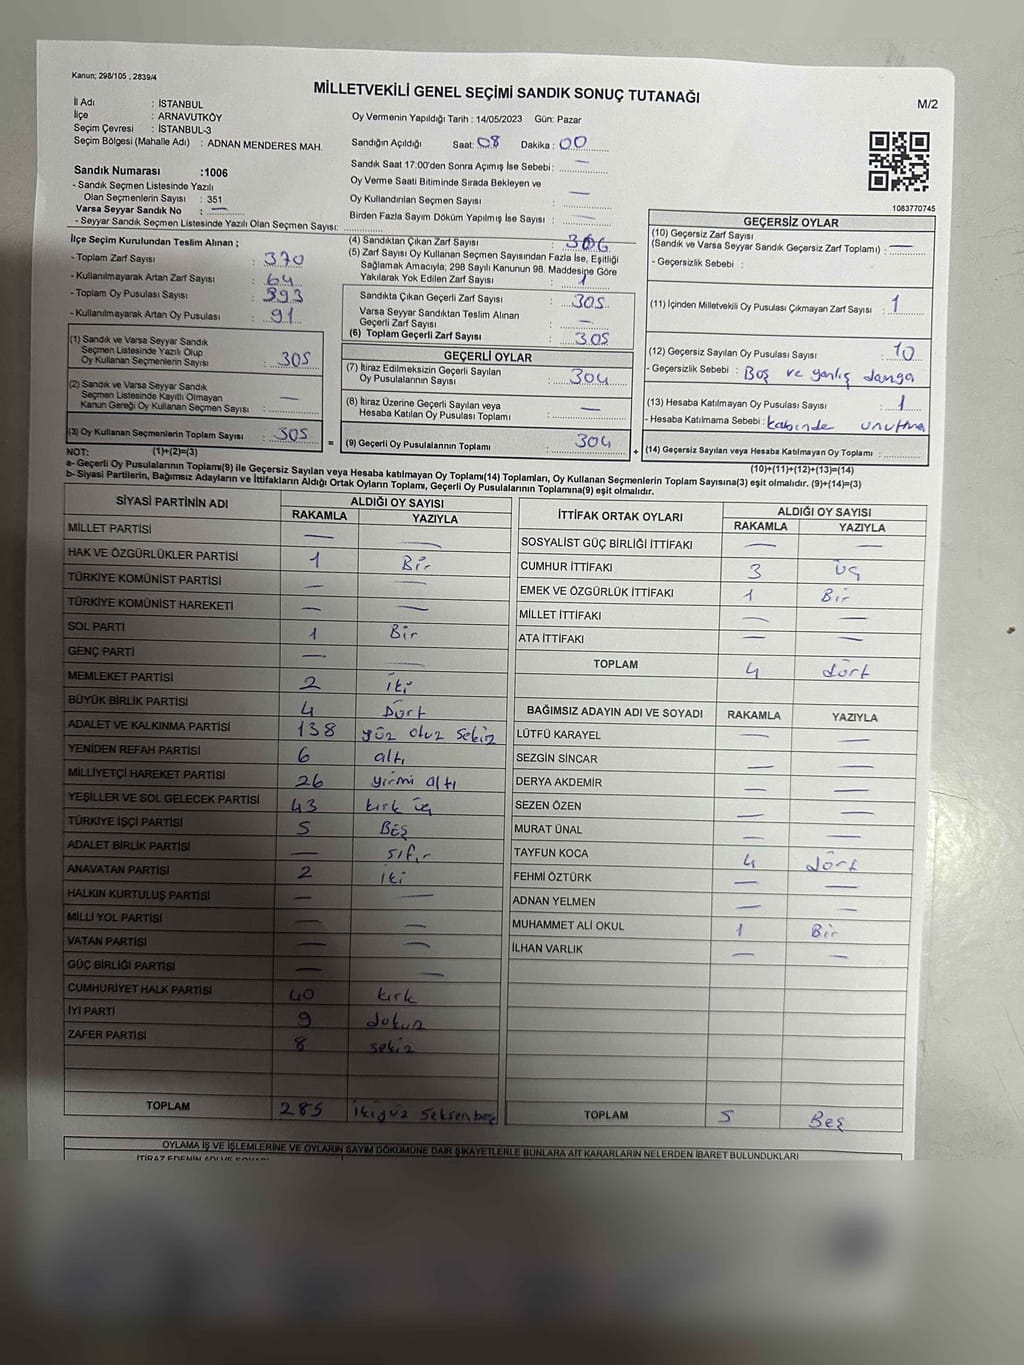 Kanun; 298/105 , 2839/4
MİLLETVEKİLİ GENEL SEÇİMİ SANDIK SONUÇ TUTANAĞI
M/2
İl Adı : İSTANBUL
İlçe : ARNAVUTKÖY
Seçim Çevresi : İSTANBUL-3
Seçim Bölgesi (Mahalle Adı) : ADNAN MENDERES MAH.
Oy Vermenin Yapıldığı Tarih : 14/05/2023 Gün: Pazar
Sandığın Açıldığı Saat: 08 Dakika : 00
Sandık Saat 17:00'den Sonra Açımış İse Sebebi : —
Oy Verme Saati Bitiminde Sırada Bekleyen ve
Oy Kullandırılan Seçmen Sayısı : —
Birden Fazla Sayım Döküm Yapılmış İse Sayısı : —
Sandık Numarası :1006
- Sandık Seçmen Listesinde Yazılı
Olan Seçmenlerin Sayısı : 351
Varsa Seyyar Sandık No : —
- Seyyar Sandık Seçmen Listesinde Yazılı Olan Seçmen Sayısı:
1083770745
İlçe Seçim Kurulundan Teslim Alınan ;
- Toplam Zarf Sayısı : 370
- Kullanılmayarak Artan Zarf Sayısı : 64
- Toplam Oy Pusulası Sayısı : 393
- Kullanılmayarak Artan Oy Pusulası : 91
(1) Sandık ve Varsa Seyyar Sandık
Seçmen Listesinde Yazılı Olup
Oy Kullanan Seçmenlerin Sayısı : 305
(2) Sandık ve Varsa Seyyar Sandık
Seçmen Listesinde Kayıtlı Olmayan
Kanun Gereği Oy Kullanan Seçmen Sayısı : —
(3) Oy Kullanan Seçmenlerin Toplam Sayısı : 305
(4) Sandıktan Çıkan Zarf Sayısı : 306
(5) Zarf Sayısı Oy Kullanan Seçmen Sayısından Fazla İse, Eşitliği
Sağlamak Amacıyla; 298 Sayılı Kanunun 98. Maddesine Göre
Yakılarak Yok Edilen Zarf Sayısı : 1
Sandıkta Çıkan Geçerli Zarf Sayısı : 305
Varsa Seyyar Sandıktan Teslim Alınan
Geçerli Zarf Sayısı : —
(6) Toplam Geçerli Zarf Sayısı : 305
GEÇERLİ OYLAR
(7) İtiraz Edilmeksizin Geçerli Sayılan
Oy Pusulalarının Sayısı : 304
(8) İtiraz Üzerine Geçerli Sayılan veya
Hesaba Katılan Oy Pusulaları Toplamı : —
= (9) Geçerli Oy Pusulalarının Toplamı : 304
GEÇERSİZ OYLAR
(10) Geçersiz Zarf Sayısı
(Sandık ve Varsa Seyyar Sandık Geçersiz Zarf Toplamı) : —
- Geçersizlik Sebebi :
(11) İçinden Milletvekili Oy Pusulası Çıkmayan Zarf Sayısı : 1
(12) Geçersiz Sayılan Oy Pusulası Sayısı : 10
- Geçersizlik Sebebi : Boş ve yanlış damga
(13) Hesaba Katılmayan Oy Pusulası Sayısı : 1
- Hesaba Katılmama Sebebi : kabinde unutma
+ (14) Geçersiz Sayılan veya Hesaba Katılmayan Oy Toplamı :
NOT: (1)+(2)=(3)
(10)+(11)+(12)+(13)=(14)
a- Geçerli Oy Pusulalarının Toplamı(9) ile Geçersiz Sayılan veya Hesaba katılmayan Oy Toplamı(14) Toplamları, Oy Kullanan Seçmenlerin Toplam Sayısına(3) eşit olmalıdır. (9)+(14)=(3)
b- Siyasi Partilerin, Bağımsız Adayların ve İttifakların Aldığı Ortak Oyların Toplamı, Geçerli Oy Pusulalarının Toplamına(9) eşit olmalıdır.
SİYASİ PARTİNİN ADI ALDIĞI OY SAYISI
RAKAMLA YAZIYLA
MİLLET PARTİSİ — —
HAK VE ÖZGÜRLÜKLER PARTİSİ 1 Bir
TÜRKİYE KOMÜNİST PARTİSİ — —
TÜRKİYE KOMÜNİST HAREKETİ — —
SOL PARTİ 1 Bir
GENÇ PARTİ — —
MEMLEKET PARTİSİ 2 iki
BÜYÜK BİRLİK PARTİSİ 4 Dört
ADALET VE KALKINMA PARTİSİ 138 yüz otuz sekiz
YENİDEN REFAH PARTİSİ 6 altı
MİLLİYETÇİ HAREKET PARTİSİ 26 yirmi altı
YEŞİLLER VE SOL GELECEK PARTİSİ 43 kırk üç
TÜRKİYE İŞÇİ PARTİSİ 5 BEŞ
ADALET BİRLİK PARTİSİ — sıfır
ANAVATAN PARTİSİ 2 iki
HALKIN KURTULUŞ PARTİSİ — —
MİLLİ YOL PARTİSİ — —
VATAN PARTİSİ — —
GÜÇ BİRLİĞİ PARTİSİ — —
CUMHURİYET HALK PARTİSİ 40 kırk
İYİ PARTİ 9 dokuz
ZAFER PARTİSİ 8 sekiz
TOPLAM 285 ikiyüz seksen beş
İTTİFAK ORTAK OYLARI ALDIĞI OY SAYISI
RAKAMLA YAZIYLA
SOSYALİST GÜÇ BİRLİĞİ İTTİFAKI — —
CUMHUR İTTİFAKI 3 üç
EMEK VE ÖZGÜRLÜK İTTİFAKI 1 Bir
MİLLET İTTİFAKI — —
ATA İTTİFAKI — —
TOPLAM 4 dört
BAĞIMSIZ ADAYIN ADI VE SOYADI RAKAMLA YAZIYLA
LÜTFÜ KARAYEL — —
SEZGİN SİNCAR — —
DERYA AKDEMİR — —
SEZEN ÖZEN — —
MURAT ÜNAL — —
TAYFUN KOCA 4 dört
FEHMİ ÖZTÜRK — —
ADNAN YELMEN — —
MUHAMMET ALİ OKUL 1 Bir
İLHAN VARLIK — —
TOPLAM 5 Beş
OYLAMA İŞ VE İŞLEMLERİNE VE OYLARIN SAYIM DÖKÜMÜNE DAİR ŞİKAYETLERLE BUNLARA AİT KARARLARIN NELERDEN İBARET BULUNDUKLARI